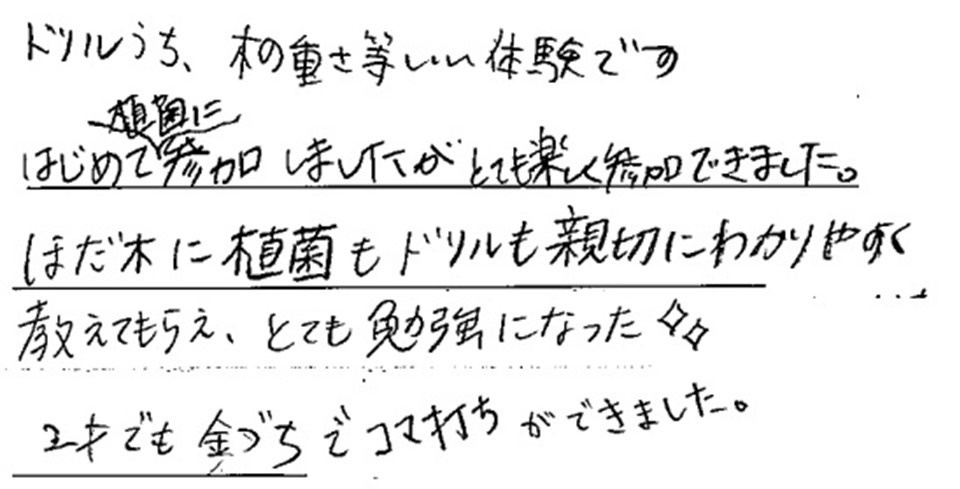 ドリルうち、木の重さ等いい体験です
植菌に
はじめて参加しましたがとても楽しく参加できました。
ほだ木に植菌もドリルも親切にわかりやすく
教えてもらえ、とても勉強になった✧✧
2才でも金づちでコマ打ちができました。